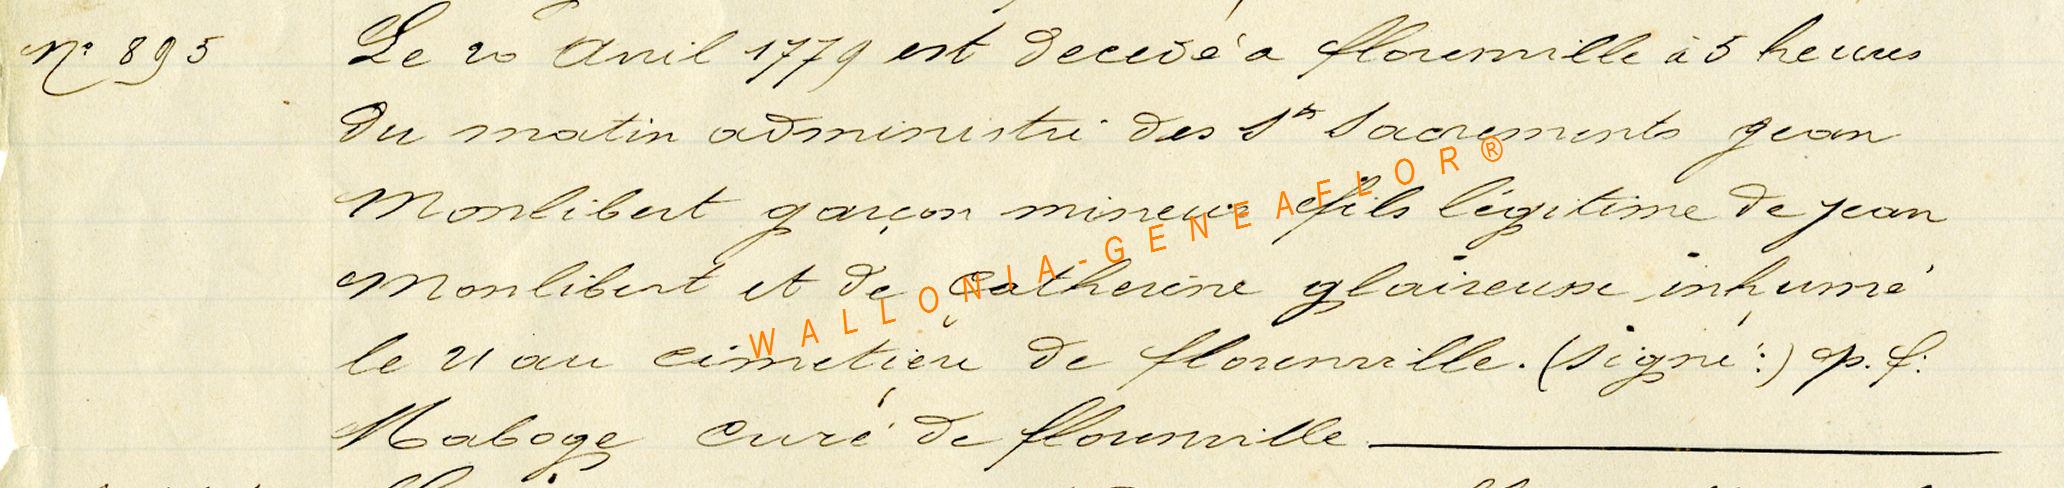 N° 895 Le 20 Avril 1779 est decedé a florenville à 5 heures
du matin administré des Sts Sacrements jean
Monlibert garçon mineur fils légitime de jean
Monlibert et de Catherine glaireuse inhumé
le 21 au cimetière de florenville. (signé:) p. f:
Maboge curé de florenville
WALLONIA-GENEAFLOR®